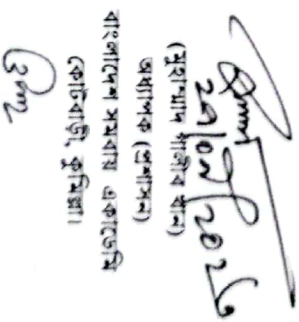 ২৯/০৯/২০২৫
(মুহাম্মাদ শালীব খান)
অধ্যাপক (প্রশাসন)
বাংলাদেশ সমবায় একাডেমি
কোটবাড়ী, কুমিল্লা।